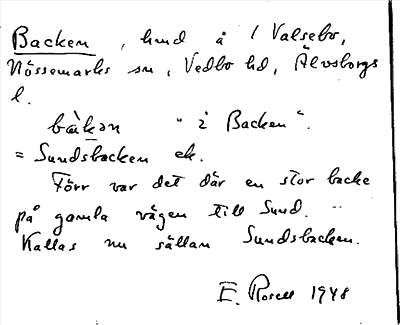 Backen, hmd å 1 Valsebo,
Nössemarks sn, Vedbo hd, Älvsborgs
l.
bàkən "i Backen".
= Sundsbacken ek.
Förr var det där en stor backe
på gamla vägen till Sund.
Kallas nu sällan Sundsbacken.
E. Rosell 1948